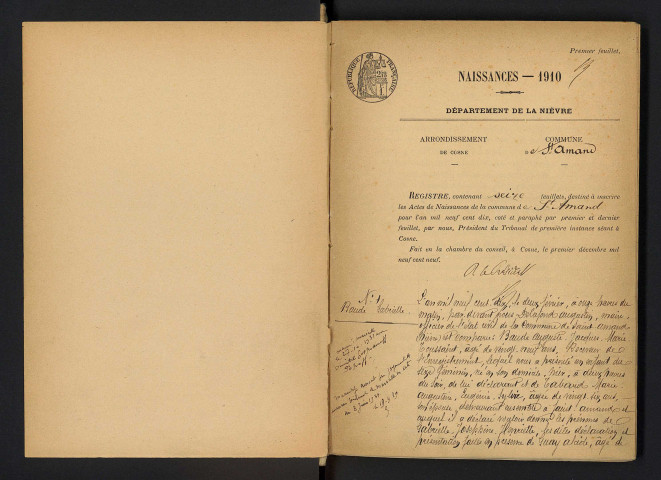 Premier feuillet.
NAISSANCES — 1910
DÉPARTEMENT DE LA NIÈVRE
ARRONDISSEMENT
DE COSNE
COMMUNE
DE St Amand
RÉPUBLIQUE FRANÇAISE
REGISTRE, contenant seize feuillets, destiné à inscrire
les Actes de Naissances de la commune de St Amand
pour l'an mil neuf cent dix, coté et paraphé par premier et dernier
feuillet, par nous, Président du Tribunal de première instance séant à
Cosne.
Fait en la chambre du conseil, à Cosne, le premier décembre mil
neuf cent neuf.
N° 1
Baude Gabrielle
L'an mil neuf cent dix, le deux février, à onze heures du
matin, par devant nous Augustin, maire
officier de l'état civil de la commune de Saint Amand
est comparu Baude Auguste Jacques Marie
Toussaint, âgé de vingt neuf ans, Receveur de
l'Enregistrement, lequel nous a présenté un enfant du
sexe féminin, né en son domicile, hier, à deux heures
du soir, de lui déclarant et de Marie
Augustine, Eugénie, Sylvie, âgée de vingt six ans,
son épouse, demeurant ensemble à Saint Amand et
auquel il a déclaré vouloir donner les prénoms de
Gabrielle, Joséphine, Henriette, les dites déclaration et
présentation faites en présence de âgé de